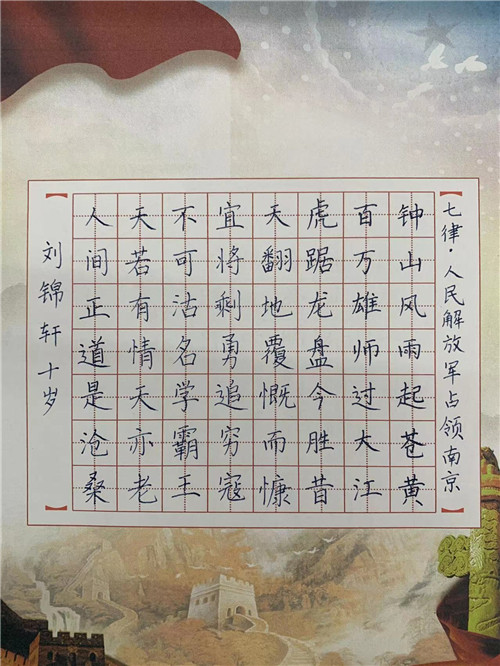 七律·人民解放军占领南京
钟山风雨起苍黄
百万雄师过大江
虎踞龙盘今胜昔
天翻地覆慨而慷
宜将剩勇追穷寇
不可沽名学霸王
天若有情天亦老
人间正道是沧桑
刘锦轩十岁